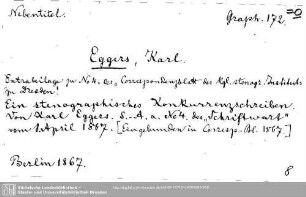 Nebentitel.
Graph. 172 =0
Eggers, Karl.
Extrabeilage zu No 4. des „Correspondenzblatt des Kgl. stenogr. Instituts
zu Dresden".
Ein stenographisches Konkurrenzschreiben.
Von Karl Eggers. S.-A. a. No 4. des „Schriftwart"
vom 1. April 1867. [Eingebunden in Corresp.-Bl. 1867.]
Berlin 1867.
8
Sächsische Landesbibliothek -
Staats- und Universitätsbibliothek Dresden